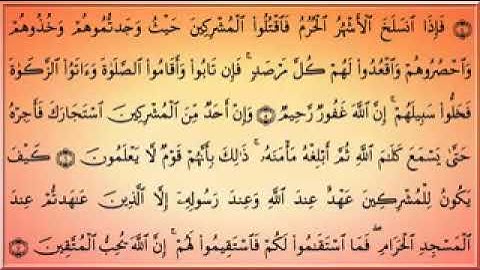 ۝ فَإِذَا ٱنسَلَخَ ٱلْأَشْهُرُ ٱلْحُرُمُ فَٱقْتُلُوا۟ ٱلْمُشْرِكِينَ حَيْثُ وَجَدتُّمُوهُمْ وَخُذُوهُمْ
وَٱحْصُرُوهُمْ وَٱقْعُدُوا۟ لَهُمْ كُلَّ مَرْصَدٍ ۚ فَإِن تَابُوا۟ وَأَقَامُوا۟ ٱلصَّلَوٰةَ وَءَاتَوُا۟ ٱلزَّكَوٰةَ
فَخَلُّوا۟ سَبِيلَهُمْ ۚ إِنَّ ٱللَّهَ غَفُورٌ رَّحِيمٌ ۝ وَإِنْ أَحَدٌ مِّنَ ٱلْمُشْرِكِينَ ٱسْتَجَارَكَ فَأَجِرْهُ
حَتَّىٰ يَسْمَعَ كَلَـٰمَ ٱللَّهِ ثُمَّ أَبْلِغْهُ مَأْمَنَهُۥ ۚ ذَٰلِكَ بِأَنَّهُمْ قَوْمٌ لَّا يَعْلَمُونَ ۝ كَيْفَ
يَكُونُ لِلْمُشْرِكِينَ عَهْدٌ عِندَ ٱللَّهِ وَعِندَ رَسُولِهِۦٓ إِلَّا ٱلَّذِينَ عَـٰهَدتُّمْ عِندَ
ٱلْمَسْجِدِ ٱلْحَرَامِ ۖ فَمَا ٱسْتَقَـٰمُوا۟ لَكُمْ فَٱسْتَقِيمُوا۟ لَهُمْ ۚ إِنَّ ٱللَّهَ يُحِبُّ ٱلْمُتَّقِينَ ۝